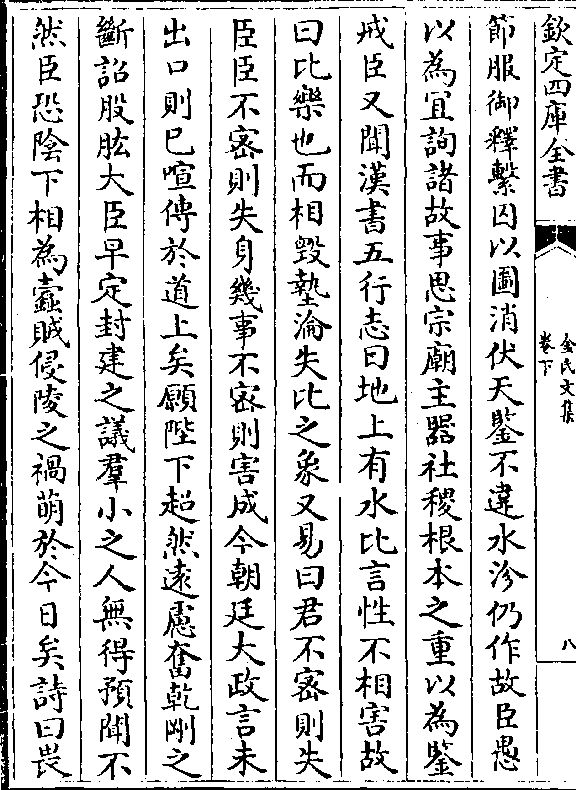 欽定四庫全書
金氏文集
卷下
八
節服御釋繫囚以圖消伏天鑒不違水沴仍作故臣愚
以為宜詢諸故事思宗廟主器社稷根本之重以為鑒
戒臣又聞漢書五行志曰地上有水比言性不相害故
曰比樂也而相毀墊淪失比之象又易曰君不密則失
臣臣不密則失身幾事不密則害成今朝廷大政言未
出口則已喧傳於道上矣願陛下超然逺慮奮乾剛之
斷詔股肱大臣早定封建之議羣小之人無得預聞不
然臣恐陰下相為蠧賊侵陵之禍萌於今日矣詩曰畏